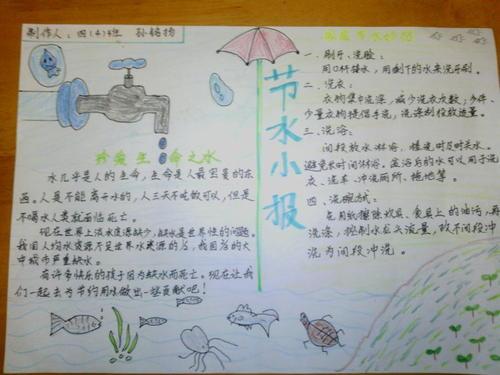 制作人：四（4）班 孙铭扬
珍爱生命之水
水几乎是人的生命，生命是人最重要的东
西。人是不能离开水的，人三天不吃饭可以，但是
不喝水人类就面临死亡。
现在世界上淡水资源缺少，缺水是世界性的问题。
我国人均水资源不足世界水资源的，我国多的大
中城市严重缺水。
有许多快乐的孩子因为缺水而死亡。现在让我
们一起去为节约用水做出一些贡献吧！
节水小报
家庭节水妙招
一、刷牙、洗脸：
用口杯接水，用剩下的水来洗牙刷。
二、洗衣：
衣物集中洗涤，减少洗衣次数；少件、
少量衣物提倡手洗，洗涤剂投放适量。
三、洗浴：
间段放水淋浴，搓洗时及时关水。
避免长时间淋浴。盆浴后的水可以用于洗
衣、洗车、冲洗厕所、拖地等。
四、洗碗筷：
先用纸擦除炊具、食具上的油污，再
洗涤，控制水龙头流量，改不间段冲
洗为间段冲洗。